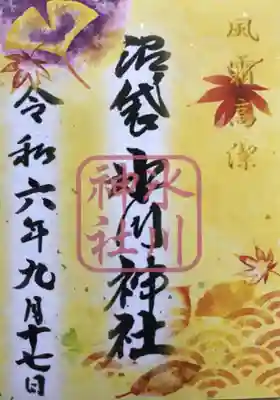 風霜高潔
沼袋氷川神社
氷川
神社
令和六年九月十七日